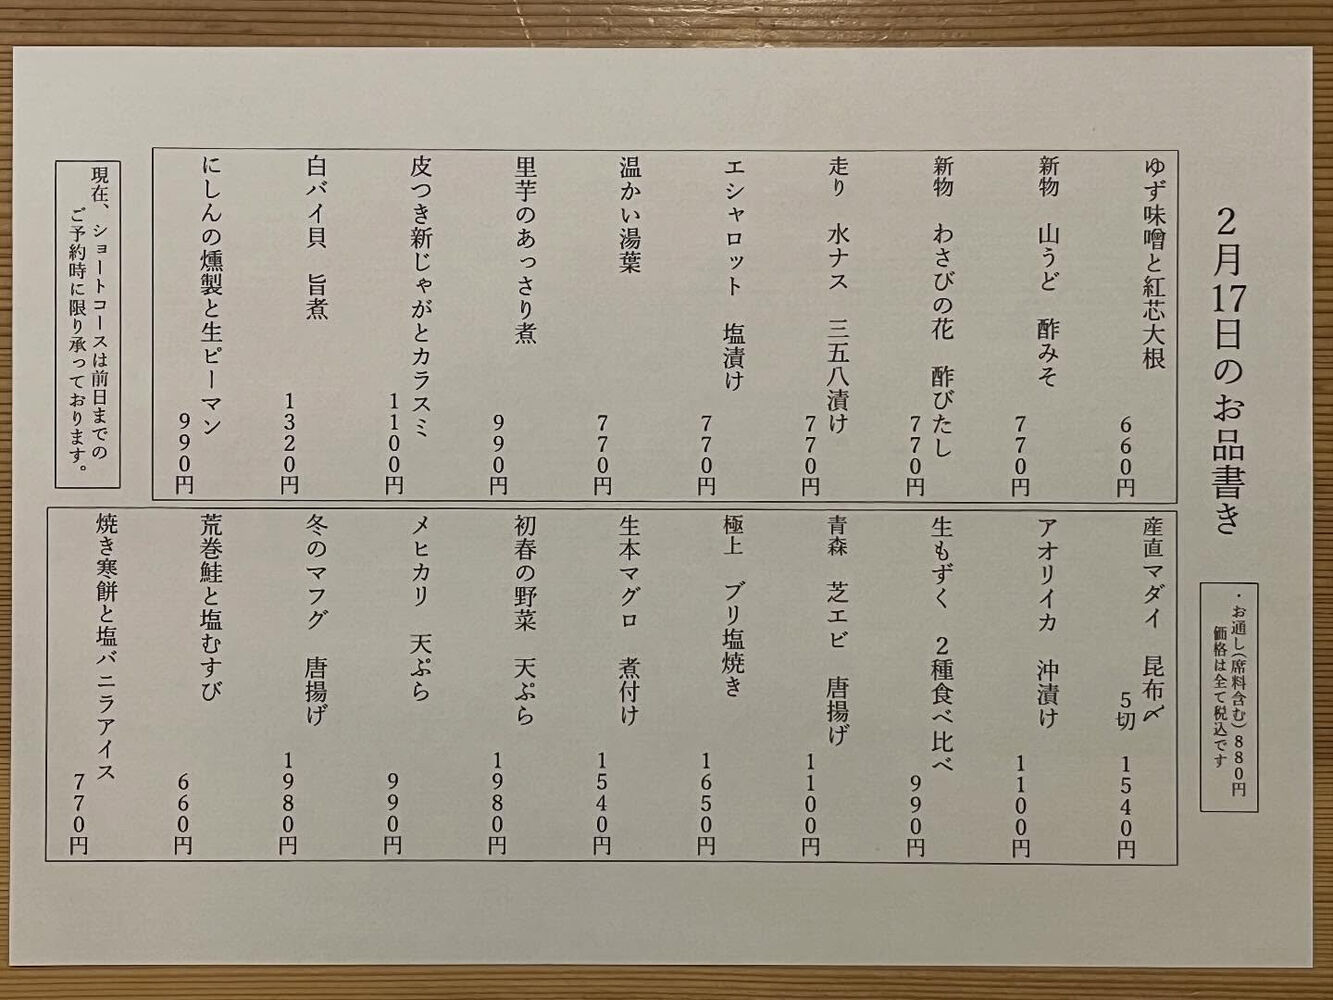 2月17日のお品書き
・お通し(席料含む)880円
価格は全て税込です
ゆず味噌と紅芯大根
660円
新物　山うど　酢みそ
770円
新物　わさびの花　酢びたし
770円
走り　水ナス　三五八漬け
770円
エシャロット　塩漬け
770円
温かい湯葉
770円
里芋のあっさり煮
990円
皮つき新じゃがとカラスミ
1100円
白バイ貝　旨煮
1320円
にしんの燻製と生ピーマン
990円
産直マダイ　昆布〆
5切　1540円
アオリイカ　沖漬け
1100円
生もずく　2種食べ比べ
990円
青森　芝エビ　唐揚げ
1100円
極上　ブリ塩焼き
1650円
生本マグロ　煮付け
1540円
初春の野菜　天ぷら
1980円
メヒカリ　天ぷら
990円
冬のマフグ　唐揚げ
1980円
荒巻鮭と塩むすび
660円
焼き寒餅と塩バニラアイス
770円
現在、ショートコースは前日までの
ご予約時に限り承っております。